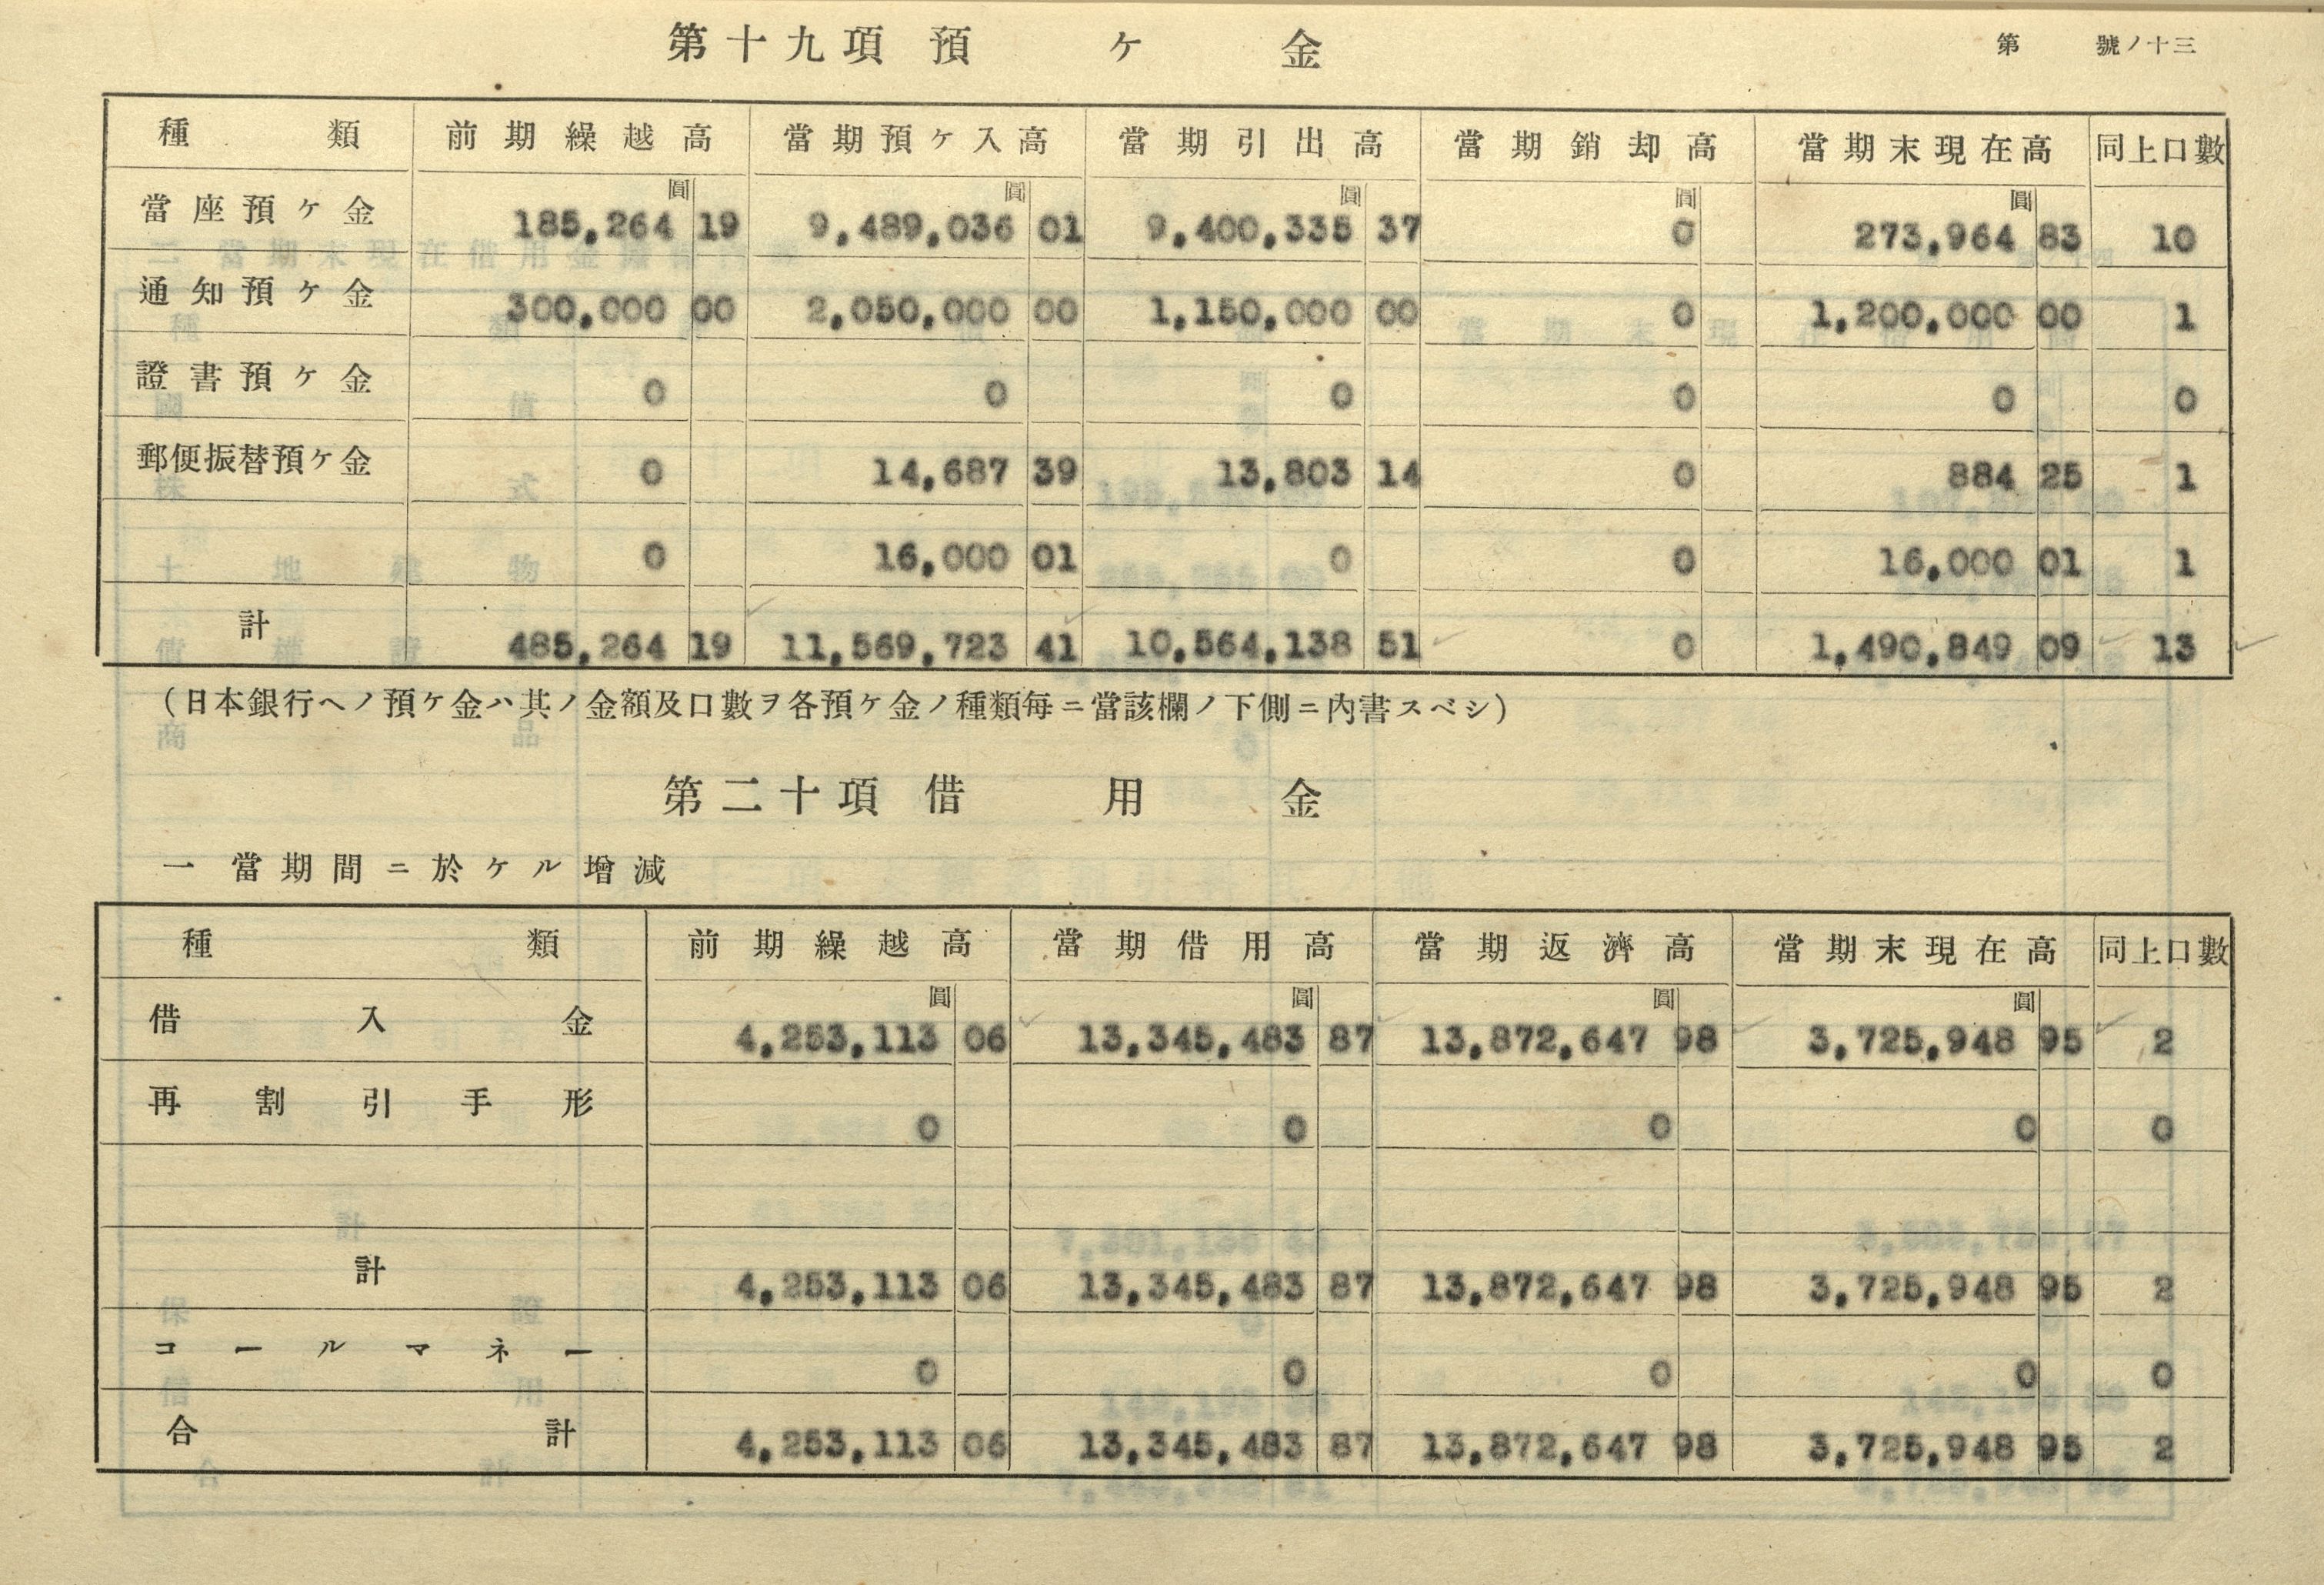 第十九項 預ケ金
第 號ノ十三
種類 前期繰越高 當期預ケ入高 當期引出高 當期銷却高 當期末現在高 同上口數
圓 圓 圓 圓 圓
當座預ケ金 185,264 19 9,489,036 01 9,400,335 37 0 273,964 83 10
通知預ケ金 300,000 00 2,050,000 00 1,150,000 00 0 1,200,000 00 1
證書預ケ金 0 0 0 0 0 0
郵便振替預ケ金 0 14,687 39 13,803 14 0 884 25 1
0 16,000 01 0 0 16,000 01 1
計 485,264 19 11,569,723 41 10,564,138 51 0 1,490,849 09 13
(日本銀行ヘノ預ケ金ハ其ノ金額及口數ヲ各預ケ金ノ種類每ニ當該欄ノ下側ニ內書スベシ)
第二十項 借用金
一 當期間ニ於ケル增減
種類 前期繰越高 當期借用高 當期返濟高 當期末現在高 同上口數
圓 圓 圓 圓
借入金 4,253,113 06 13,345,483 87 13,872,647 98 3,725,948 95 2
再割引手形 0 0 0 0 0
計 4,253,113 06 13,345,483 87 13,872,647 98 3,725,948 95 2
コールマネー 0 0 0 0 0
合計 4,253,113 06 13,345,483 87 13,872,647 98 3,725,948 95 2